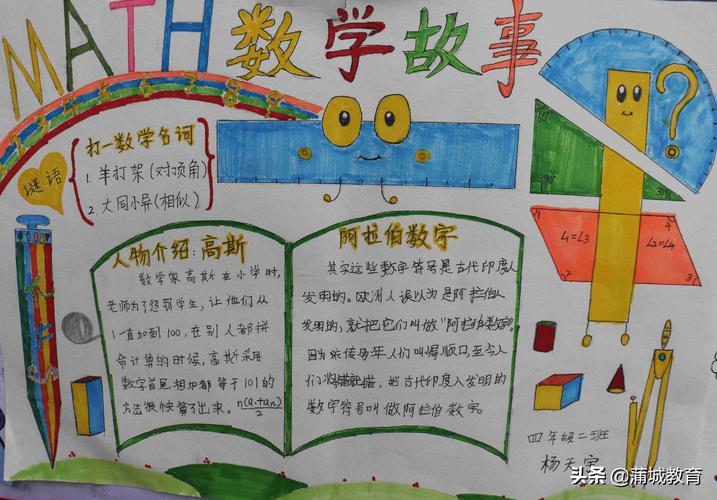 MATH 数学故事
谜语
打一数学名词
1. 羊打架(对顶角)
2. 大同小异(相似)
60°
90°
30°
1
4
∠1=∠3
∠2=∠4
2
3
?
人物介绍:高斯
数学家高斯在小学时,
老师为了惩罚学生,让他们从
1一直加到100,在别人都拼
命计算的时候,高斯采用
数字首尾相加都等于101的
方法很快算了出来。n(a₁+aₙ)/2
阿拉伯数字
其实这些数字符号是古代印度人
发明的。欧洲人误以为是阿拉伯人
发明的,就把它们叫做“阿拉伯数字”。
因为流传多年人们叫得顺口,至今人
们将错就错,把古代印度人发明的
数字符号叫做阿拉伯数字。
四年级二班
杨天
头条 @蒲城教育